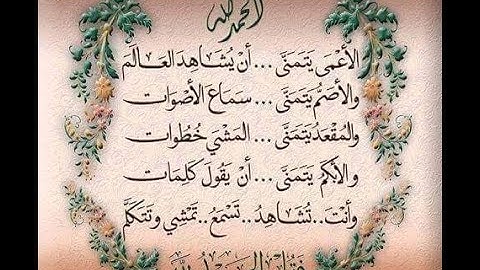 الحمد لله
الأعْمَى يَتَمَنَّى ... أنْ يُشَاهِدَ العَالَمَ
والأصَمُّ يَتَمَنَّى ... سَمَاعَ الأصْوَات
والمُقْعَدُ يَتَمَنَّى ... المَشْيَ خُطُوَات
والأبْكَمُ يَتَمَنَّى ... أنْ يَقُولَ كَلِمَات
وأنْتَ.. تُشَاهِدُ.. تَسْمَعُ.. تَمْشِي وتَتَكَلَّم